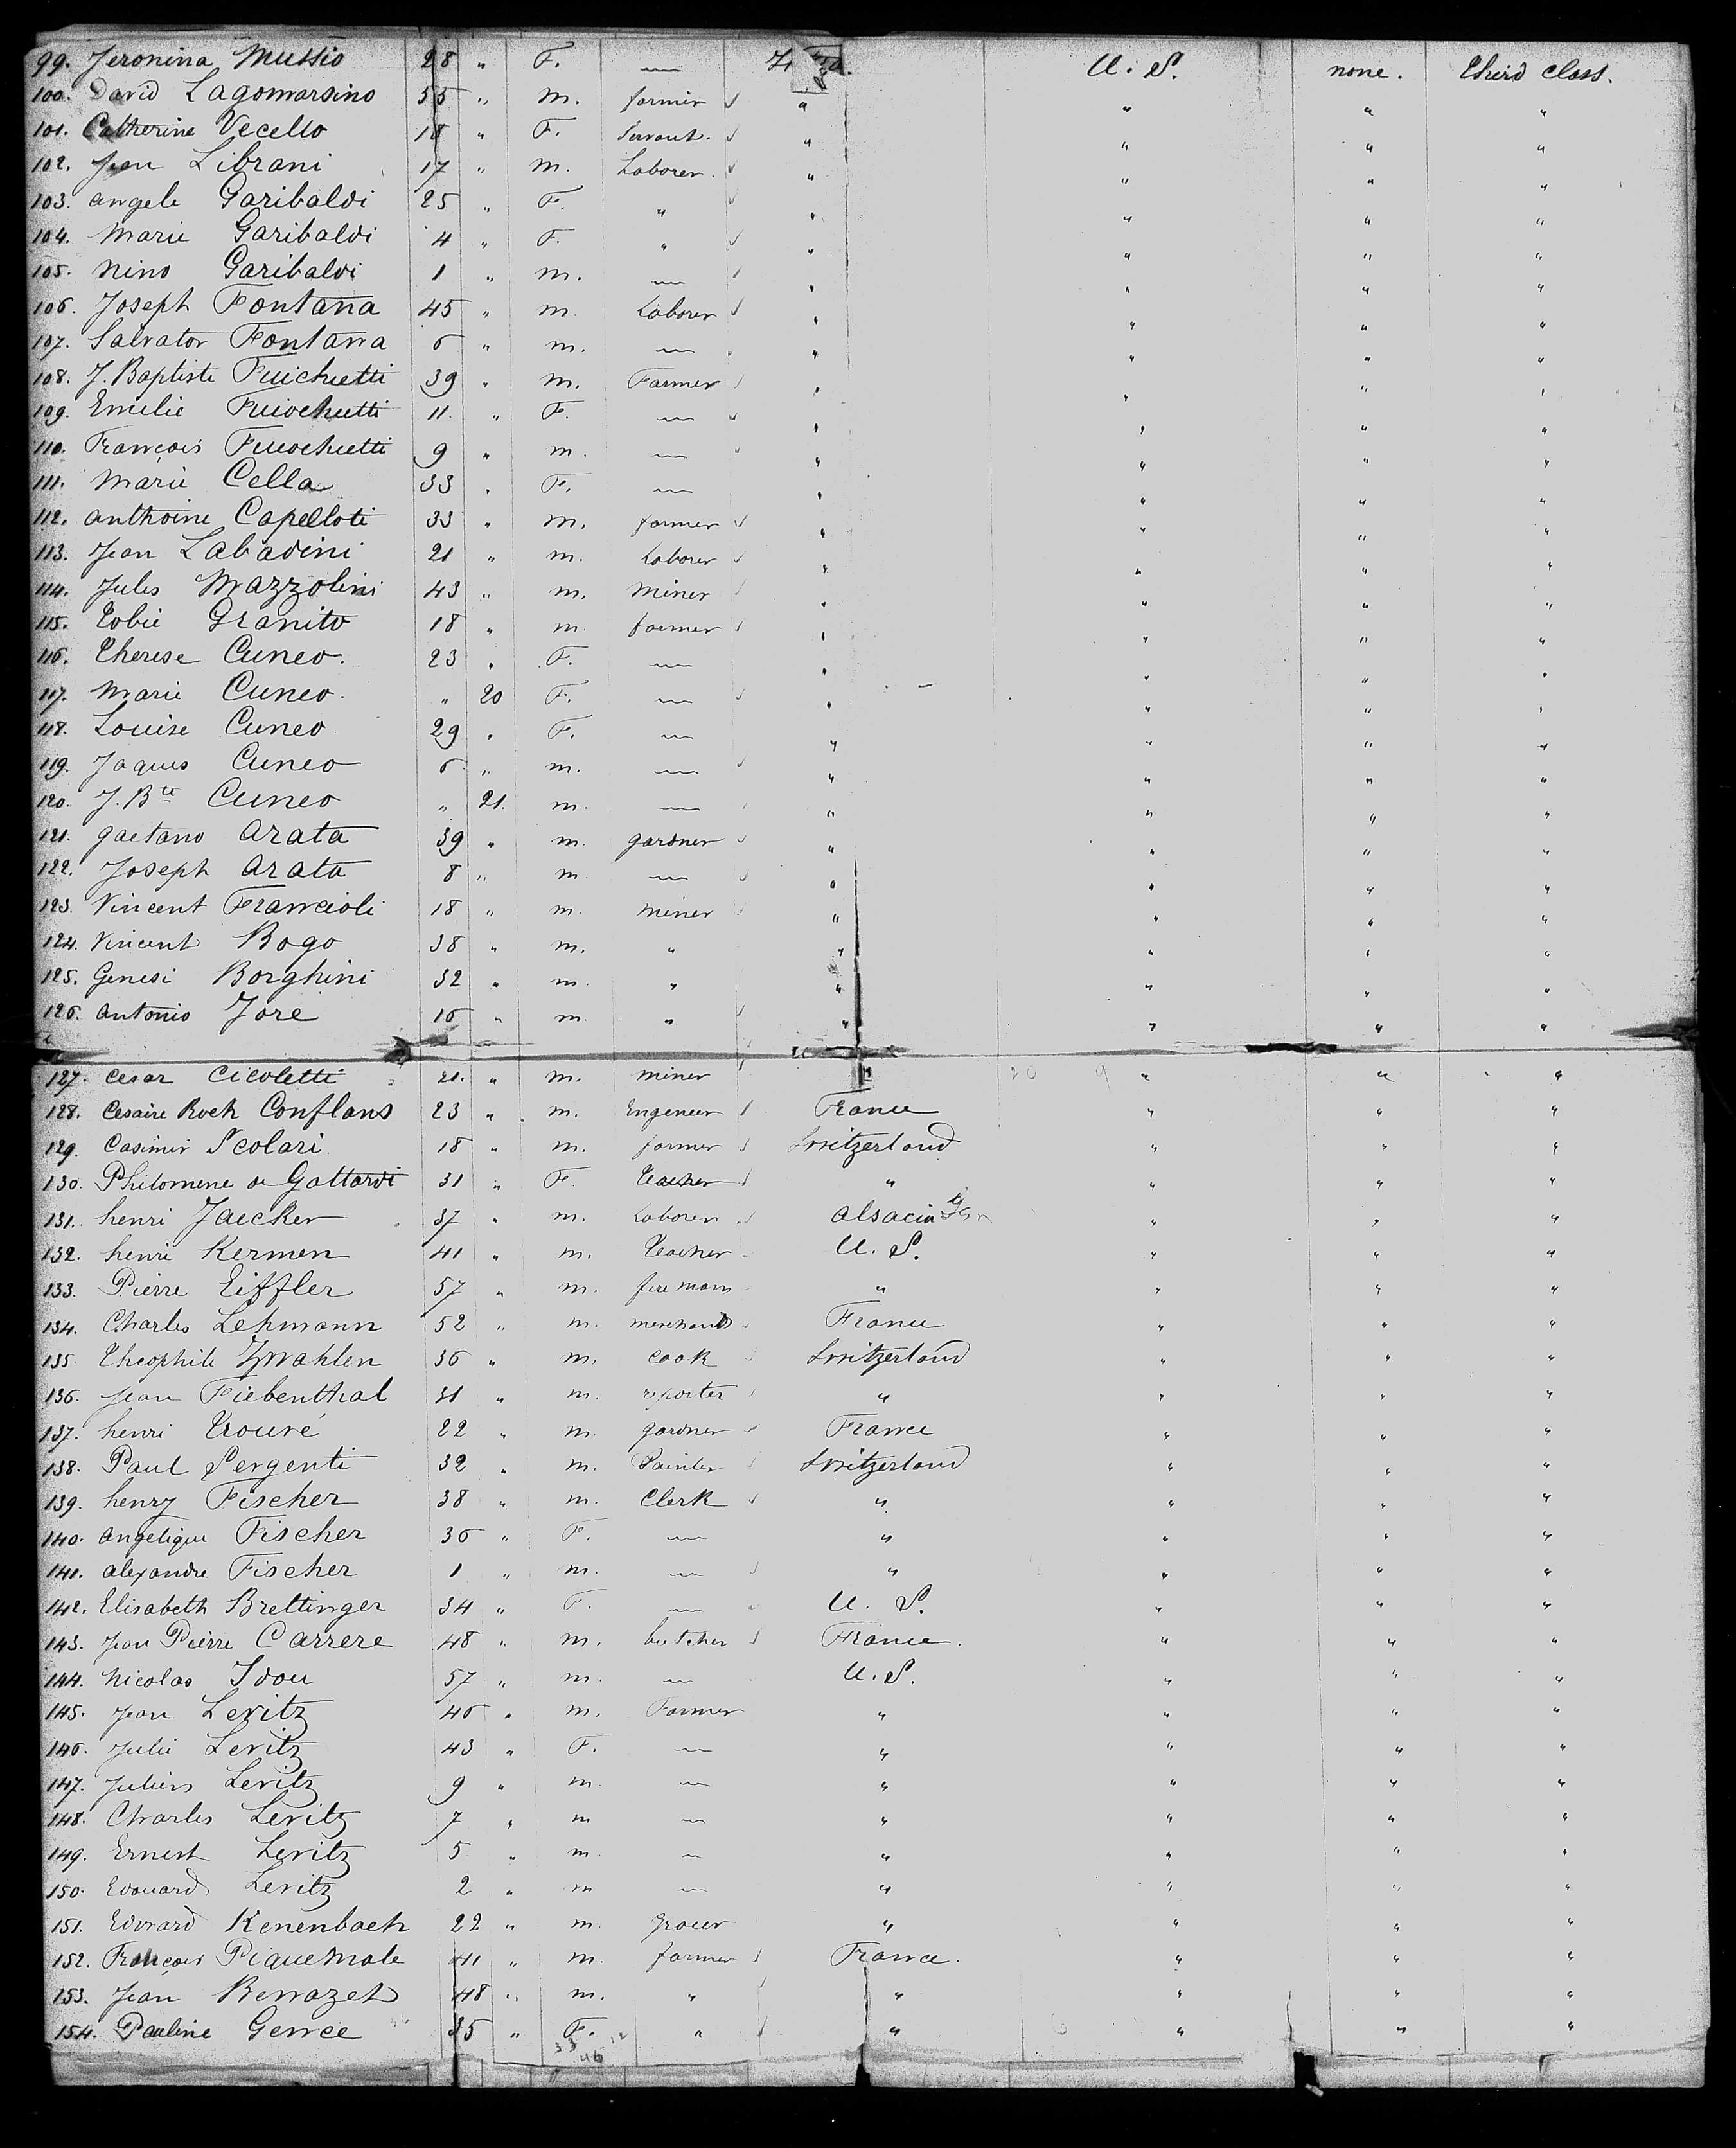 99. Jeronina Mussio 28 " F. — U. S. none. third class.
100. David Lagomarsino 55 " m. farmer " " " "
101. Catherine Vecello 18 " F. Servant. " " " "
102. Jean Librani 17 " m. Laborer. " " " "
103. angele Garibaldi 25 " F. " " " " "
104. Marie Garibaldi 4 " F. " " " " "
105. Nino Garibaldi 1 " m. — " " " "
106. Joseph Fontana 45 " m. Laborer " " " "
107. Salvator Fontana 6 " m. — " " " "
108. J. Baptiste 39 " m. Farmer " " " "
109. Emilie 11. " F. — " " " "
110. François 9 " m. — " " " "
111. Marie Cella 33 " F. — " " " "
112. anthoine Capelloti 33 " m. farmer " " " "
113. Jean Labadini 21 " m. Laborer " " " "
114. Jules Mazzolini 43 " m. Miner " " " "
115. Tobie Granito 18 " m. farmer " " " "
116. Therese Cuneo. 23 " F. — " " " "
117. Marie Cuneo. " 20 F. — " " " "
118. Louise Cuneo 29 " F. — " " " "
119. Jaques Cuneo 6 " m. — " " " "
120. J. Bte Cuneo " 21. m. — " " " "
121. gaetano arata 39 " m. gardner " " " "
122. Joseph arata 8 " m. — " " " "
123. Vincent Francioli 18 " m. miner " " " "
124. Vincent Bogo 38 " m. " " " " "
125. Genesi Borghini 32 " m. " " " " "
126. antonio Jore 16 " m. " " " " "
127. Cesar Cicoletti 21. " m. miner " " " "
128. Cesaire Roch Conflans 23 " m. Engeneer France " " "
129. Casimir Scolari 18 " m. farmer Switzerland " " "
130. Philomene de Gottardi 31 " F. Teacher " " " "
131. henri Jaecker 37 " m. Laborer alsacia Ger " " "
132. henri Kermen 41 " m. Teacher U. S. " " "
133. Pierre Eiffler 57 " m. fire man " " " "
134. Charles Lehmann 52 " m. merchand France " " "
135. Theophile Zwahlen 36 " m. cook Switzerland " " "
136. Jean Fiebenthal 31 " m. reporter " " " "
137. henri Trouvé 22 " m. gardner France " " "
138. Paul Sergenti 32 " m. Painter Switzerland " " "
139. henry Fischer 38 " m. Clerk " " " "
140. angelique Fischer 36 " F. — " " " "
141. alexandre Fischer 1 " m. — " " " "
142. Elisabeth Brettinger 34 " F. — U. S. " " "
143. Jean Pierre Carrere 48 " m. butcher France. " " "
144. Nicolas Idou 57 " m. — U. S. " " "
145. Jean Levitz 46 " m. Farmer " " " "
146. Julie Levitz 43 " F. — " " " "
147. Julien Levitz 9 " m. — " " " "
148. Charles Levitz 7 " m — " " " "
149. Ernest Levitz 5 " m. — " " " "
150. Edouard Levitz 2 " m — " " " "
151. Edward Kenenbach 22 " m. grocer " " " "
152. François Piquemale 41 " m. farmer France. " " "
153. Jean 48 " m. " " " " "
154. Pauline 35 " F. " " " " "